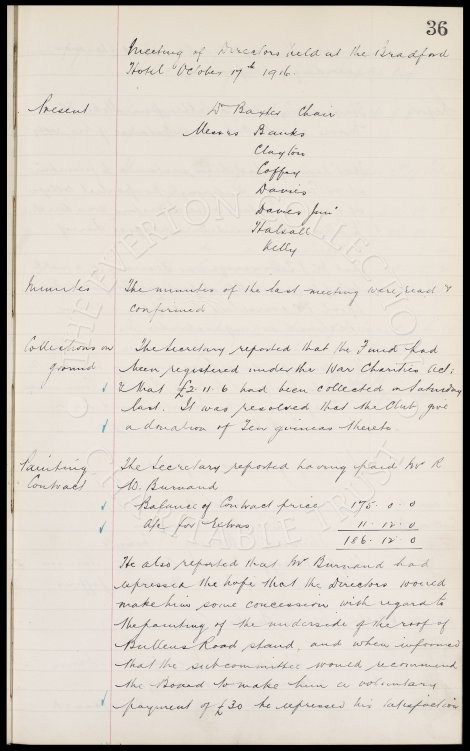 36
Meeting of Directors held at the Bradford
Hotel October 17th 1916.
Present Dr Baxter Chair
Messrs Banks
Clayton
Coffey
Davies
Davies Junr
Halsall
Kelly
Minutes The minutes of the last meeting were read &
confirmed
Collections on The Secretary reported that the Fund had
ground been registered under the War Charities Act:
& that £2.11.6 had been collected on Saturday
last. It was resolved that the Club give
a donation of Ten guineas thereto.
Painting The Secretary reported having paid Mr R
Contract W. Burnand
Balance of Contract price 175. 0. 0
a/c for extras 11. 12. 0
186. 12. 0
He also reported that Mr Burnand had
expressed the hope that the Directors would
make him some concession with regard to
the painting of the underside of the roof of
Bullens Road stand, and when informed
that the sub committee would recommend
the Board to make him a voluntary
payment of £30 he expressed his satisfaction
© THE EVERTON COLLECTION
CHARITABLE TRUST